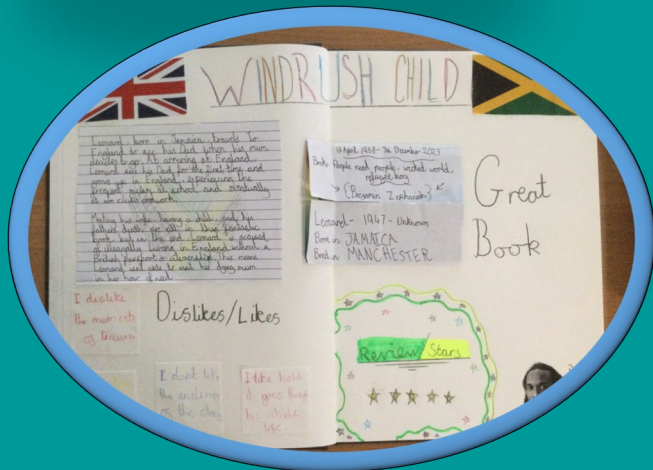 WINDRUSH CHILD
Leonard, born in Jamaica, travels to
England to see his Dad when his mum
decides to go. At arriving at England
Leonard sees his Dad for the first time and
in England, experiencing the
frequent racism at school and eventually
at
Meeting his wife, having a child, and his
father's death are all in this fantastic
book, but in the end, Leonard is accused
of illegally living in England without a
British passport or citizenship. This means
Leonard isn't able to visit his dying mum
in her hour of need.
15 April 1958 - 7th December 2023
Books People need people, wicked world,
refugee boy
(Benjamin Zephaniah)
Leonard - 1947 - Unknown
Born in JAMAICA
Bred in MANCHESTER
Great
Book
I dislike
the moments
of
Dislikes/Likes
I don't like
the ending
of the story
I like how
it goes through
his whole
life
Review/Stars